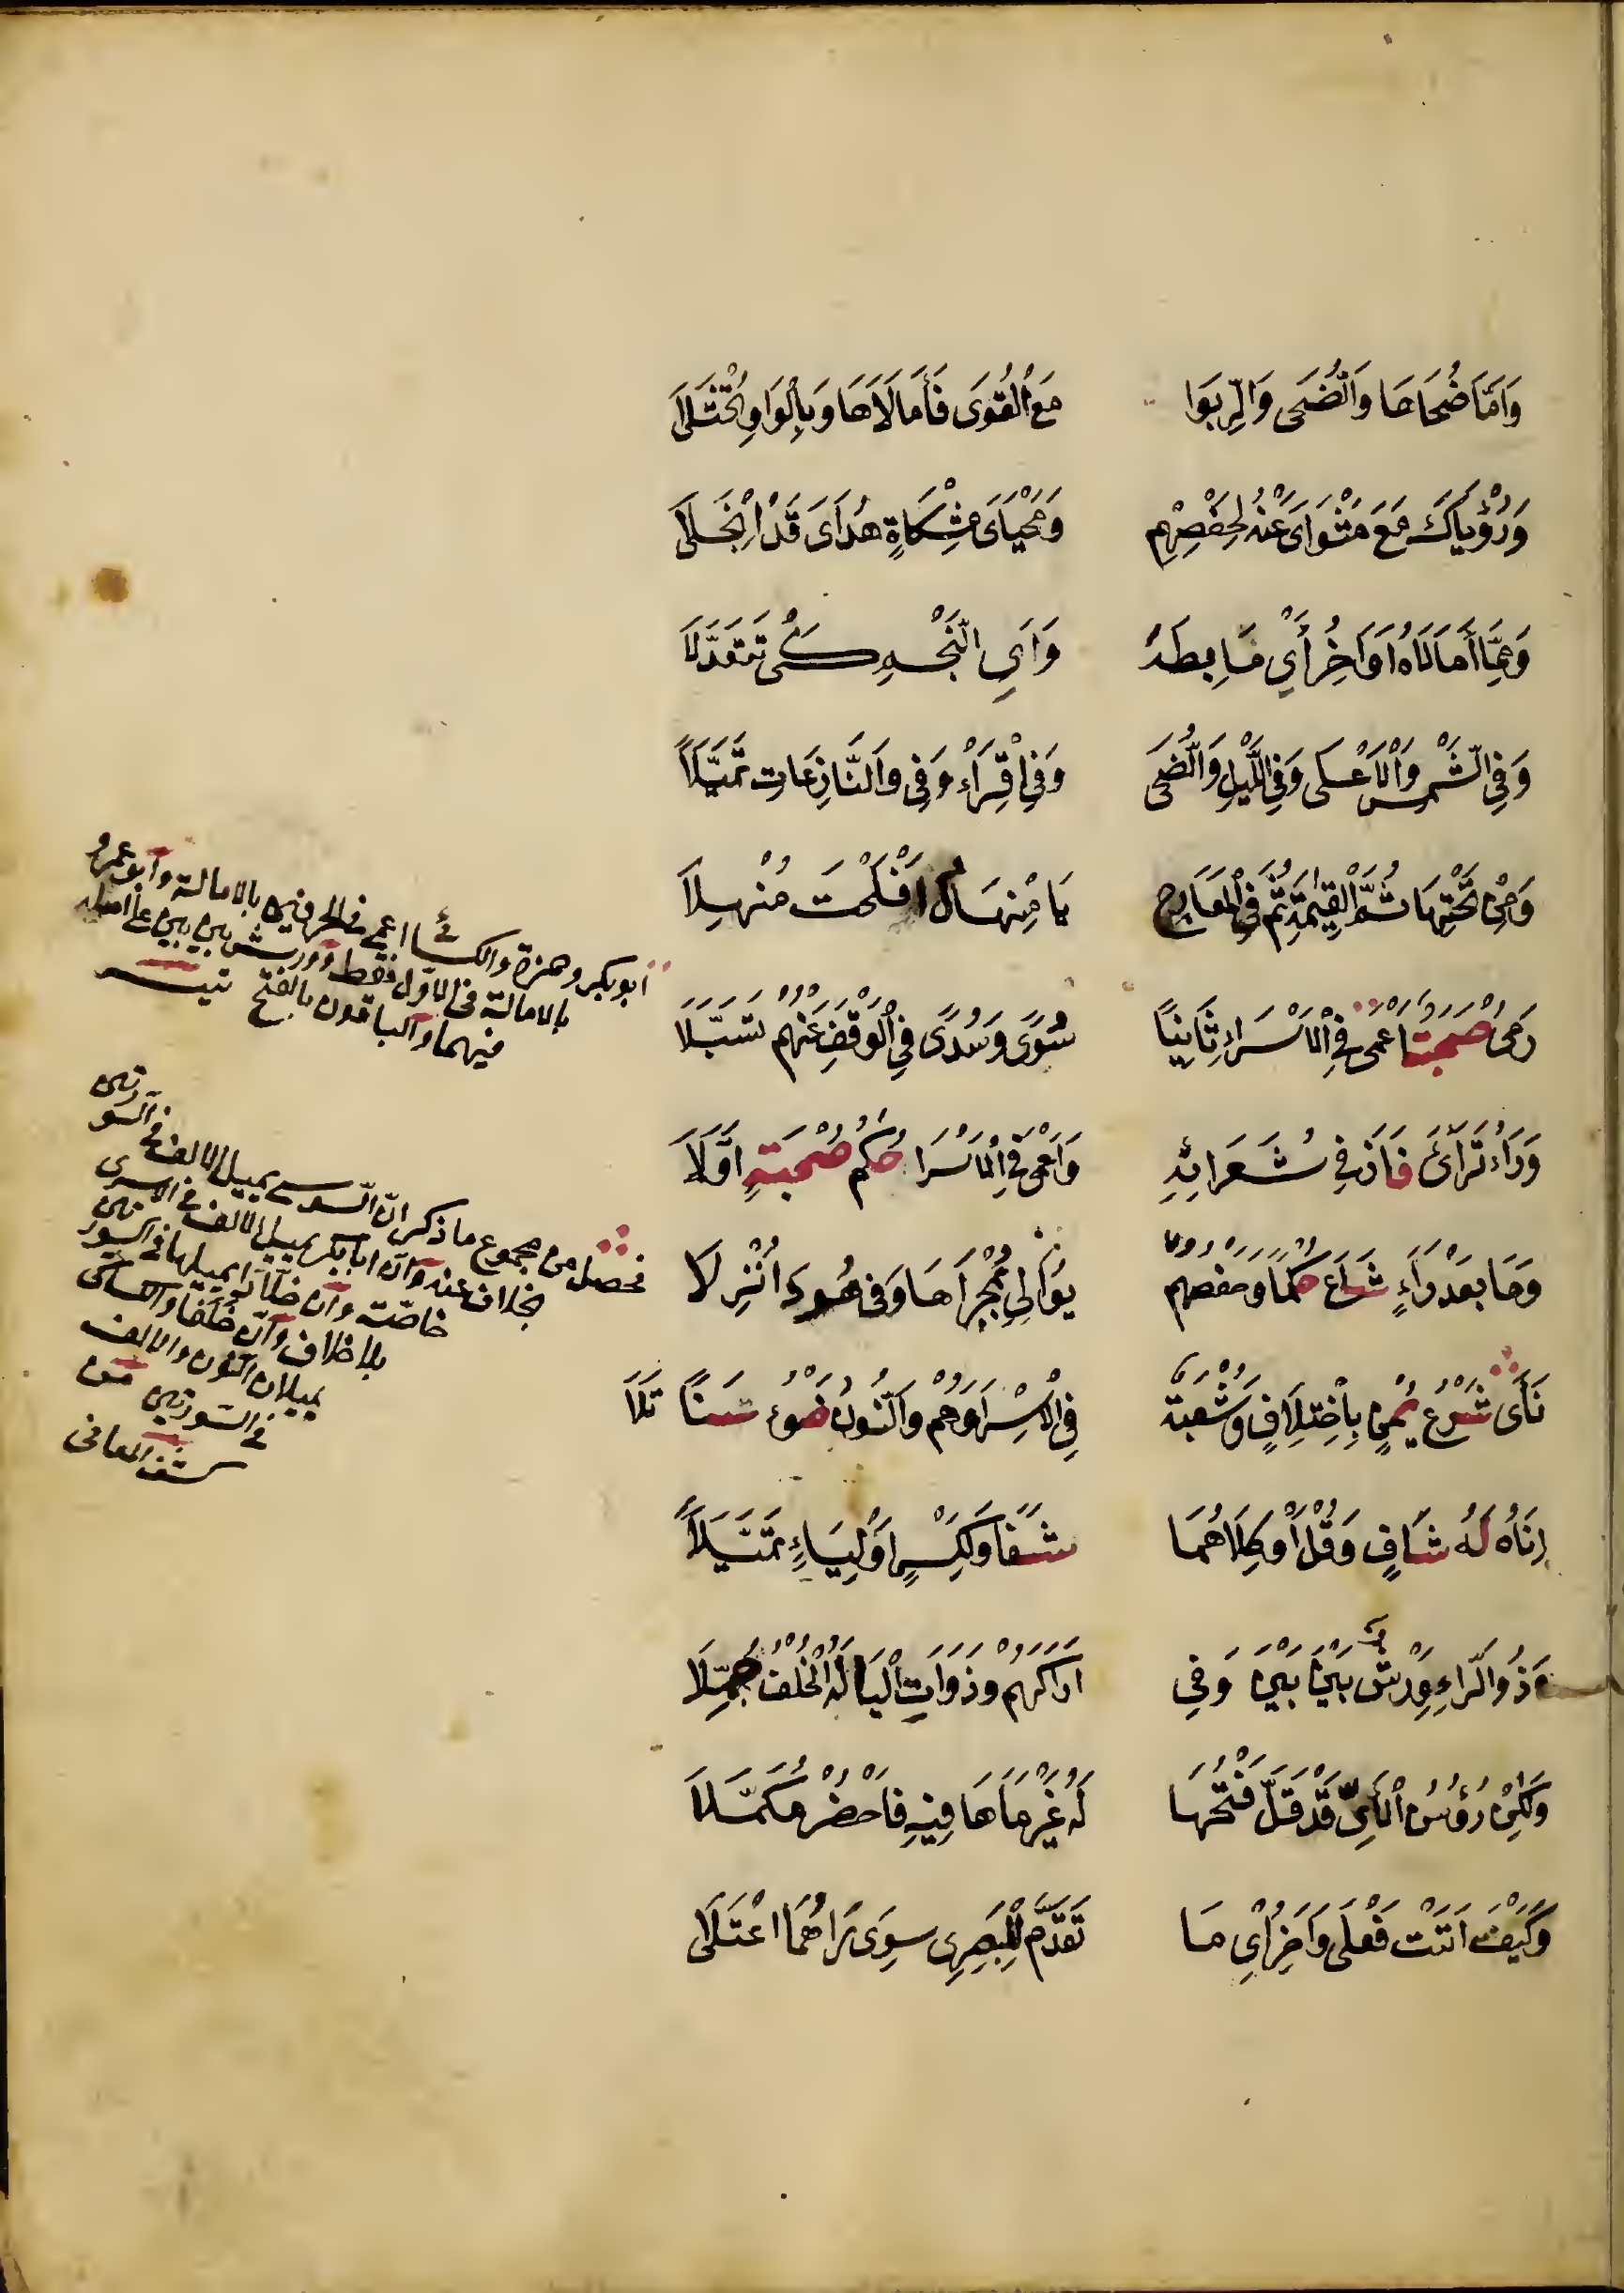 وَاَمَّا ضُحَاهَا وَالضُّحَى وَالرِّبَوا مَعَ الْقُوَى فَأَمَالَاهَا وَبِالْوَاوِ تُخْتَلَا
وَرُؤْيَاكَ مَعَ مَثْوَاىَ عَنْهُ لِحَفْصِهِم وَمَحْيَاىَ مِشْكَاةٍ هُدَاىَ قَدْ اِنْجَلَا
وَمِمَّا أَمَالَاهُ اَوَاخِرُ أَيِ مَا بِطَهَ وَاَيِ النَّجْمِ كَىْ تَتَعَدَّلَا
وَفِي الشَّمْسِ وَالْاَعْلَى وَفِي اللَّيْلِ وَالضُّحَى وَفِي اقْرَأْ وَفِي وَالنَّازِعَاتِ تَمَيَّلَا
وَمِنْ تَحْتِهَا ثُمَّ الْقِيٰمَةِ ثُمَّ فِي الْمَعَارِجِ يَا مِنْهَالُ اَفْلَحْتَ مُنْهِلَا
رَمَى صُحْبَةٌ اَعْمَى فِي الْاَسْرَاءِ ثَانِيًا سُوًى وَسُدًى فِي الْوَقْفِ عَنْهُم تَسَبَّلَا
وَرَاءُ تَرَاْءَى فَازَ فِي شُعَرَائِهِ وَاَعْمَى فِي الْاَسْرَا حُكْمُ صُحْبَةٍ اَوَّلَا
وَمَا بَعْدَ رَاءٍ شَاعَ حُكْمًا وَحَفْصُهُم يُوَالِي بِمَجْرَاهَا وَفِي هُودَ اُنْزِلَا
نَأَى شَرْعُ يُمْنٍ بِاخْتِلَافٍ وَشُعْبَةٌ فِي الْاِسْرَا وَهُمْ وَالنُّونُ ضَوْءُ سَنًا تَلَا
اِنَاهُ لَهُ شَافٍ وَقُلْ اَوْ كِلَاهُمَا شَفَا وَلِكَسْرٍ اَوْ لِيَاءٍ تَمَيَّلَا
وَذُو الرَّاءِ وَرْشٌ بَيْنَ بَيْنَ وَفِي اَرَاكَهُمْ وَذَوَاتِ الْيَا لَهُ الْخُلْفُ جُمِّلَا
وَلَكِنْ رُؤُسُ الْاَيِ قَدْ قَلَّ فَتْحُهَا لَهُ غَيْرَ مَا هَا فِيهِ فَاحْضُرْ مُكَمَّلَا
وَكَيْفَ اَتَتْ فَعْلَى وَاَخِرُ اَيِ مَا تَقَدَّمَ لِلْبَصْرِى سِوَى رَاهُمَا اعْتَلَا
ابو بكر وحمزة والكسائى اعمى فى الحرفين بالامالة وابو عمرو
بالامالة فى الاول فقط وورش بين بين على اصله
فيهما والباقون بالفتح تيسير
فحصل من مجموع ما ذكر ان السوسى يميل الالف فى السورتين
بخلاف عنه وان ابا بكر يميل الالف فى الاسرى
خاصة وان خلادا يميلها فى السورتين
بلا خلاف وان خلفا والكسائى
يميلان النون والالف
فى السورتين من
كشف المعانى